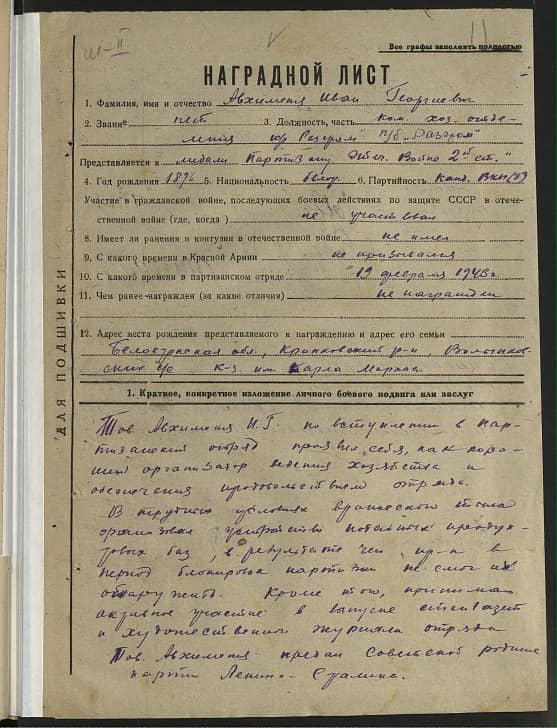 Все графы заполнять полностью
НАГРАДНОЙ ЛИСТ
1. Фамилия, имя и отчество Авхименя Иван Георгиевич
2. Звание 3. Должность, часть ком. хоз. отде-
ления п/о "Разгром"
Представляется к медали "Партизану Отеч. Войны 2й ст."
4. Год рождения 5. Национальность белор. 6. Партийность Канд. ВКП(б)
Участие в гражданской войне, последующих боевых действиях по защите СССР в отече-
ственной войне (где, когда ) не участвовал
8. Имеет ли ранения и контузии в отечественной войне не имел
9. С какого времени в Красной Армии не призывался
10. С какого времени в партизанском отряде 19 февраля 1943 г.
11. Чем ранее награжден (за какие отличия) не награжден
12. Адрес места рождения представляемого к награждению и адрес его семьи
Белостокская обл., Крынковский р-н,
с/с к-з. им. Карла Маркса
ДЛЯ ПОДШИВКИ
1. Краткое, конкретное изложение личного боевого подвига или заслуг
Тов. Авхименя И.Г. по вступлении в пар-
тизанский отряд проявил себя, как хоро-
ший организатор ведения хозяйства и
обеспечения продовольствием отряда.
В трудных условиях вражеского тыла
организовал устройство потайных продук-
товых баз, в результате чего пр-к в
период блокировки партизан не смог их
обнаружить. Кроме того, принимал
активное участие в выпуске стенгазет
и художественного журнала отряда
Тов. Авхименя предан Советской родине
партии Ленина-Сталина.